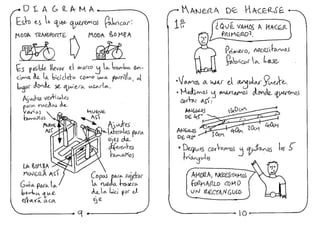 DIAGRAMA
Esto es lo que queremos fabricar:
MODA TRANSPORTE
MODA BOMBA
Es posible llevar el marco y la bomba en-
cima de la bicicleta como una parrilla, al
lugar donde se quiera usarla.
Ajustes verticales
para medios de
varios
tamaños
MUEVE
ASÍ
MUEVE
ASÍ
Ajustes
laterales para
ejes de
diferentes
tamaños
LA BOMBA
MOVERÁ ASÍ
Guía para la
bomba que
estará acá
Copas para sujetar
la rueda trasera
de la bici por el
eje
9
MANERA DE HACERSE
1º
¿QUÉ VAMOS A HACER
PRIMERO?
Primero, necesitamos
fabricar la base.
• Vamos a usar el angular fuerte.
• Medimos y marcamos donde queremos
cortar así:
ANGULOS
DE 45°
150cm
ANGULOS
DE 90°
20cm
60cm
• Después cortamos y quitamos los 5
triángulos
AHORA, NECESITAMOS
FORMARLO COMO
UN RECTÁNGULO
10